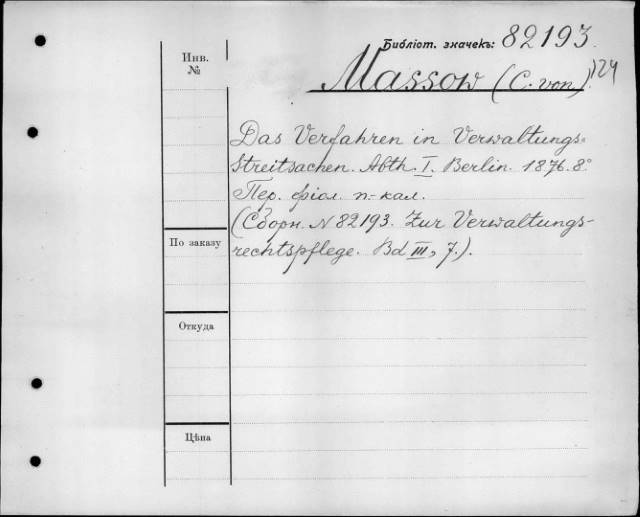 Библіот. значекъ: 82193.
124
Massow (C. von).
Инв.
№
Das Verfahren in Verwaltungs-
Streitsachen. Abth. I. Berlin. 1876. 8°
Пер. фіол. п.-кал.
(Сборн. N 82193. Zur Verwaltungs-
rechtspflege. Bd III, 7.).
По заказу
Откуда
Цѣна